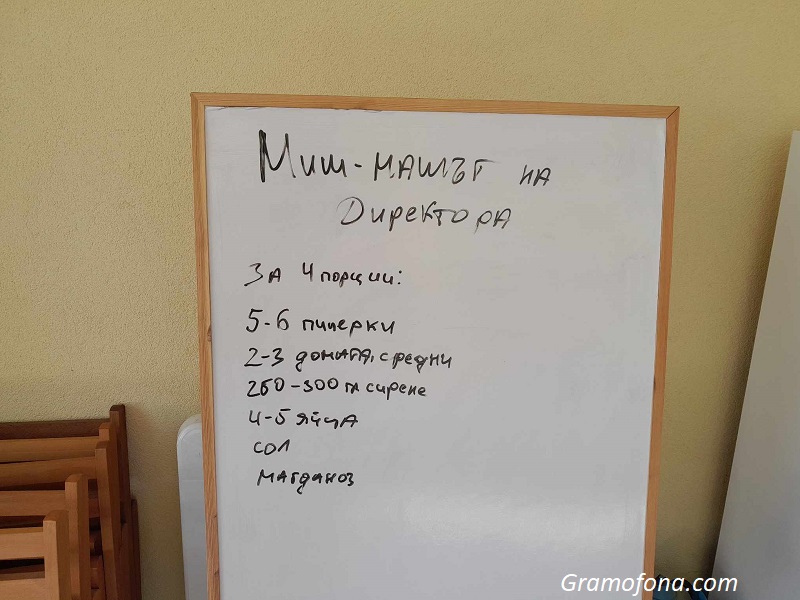 Миш-машът на
Директора
За 4 порции:
5-6 пиперки
2-3 домата, средни
250-300 гл сирене
4-5 яйца
сол
магданоз
Gramofona.com